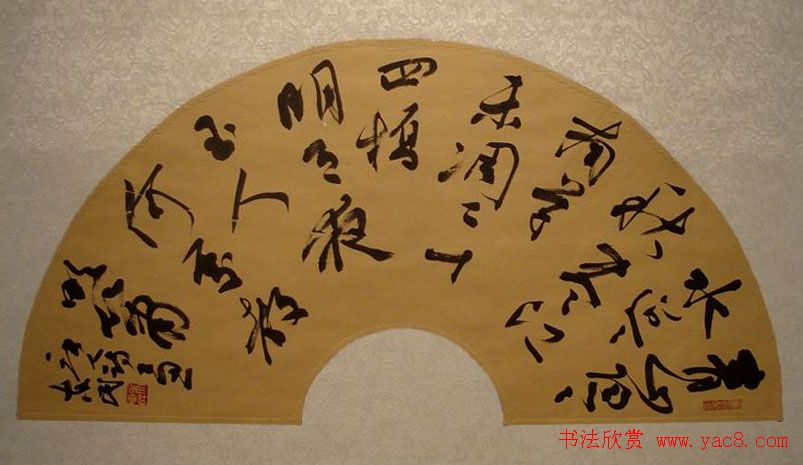 青山隐隐
水迢迢
秋尽江
南草
未凋二十
四桥
明月夜
玉人
何处教
吹箫
书法欣赏 www.yac8.com